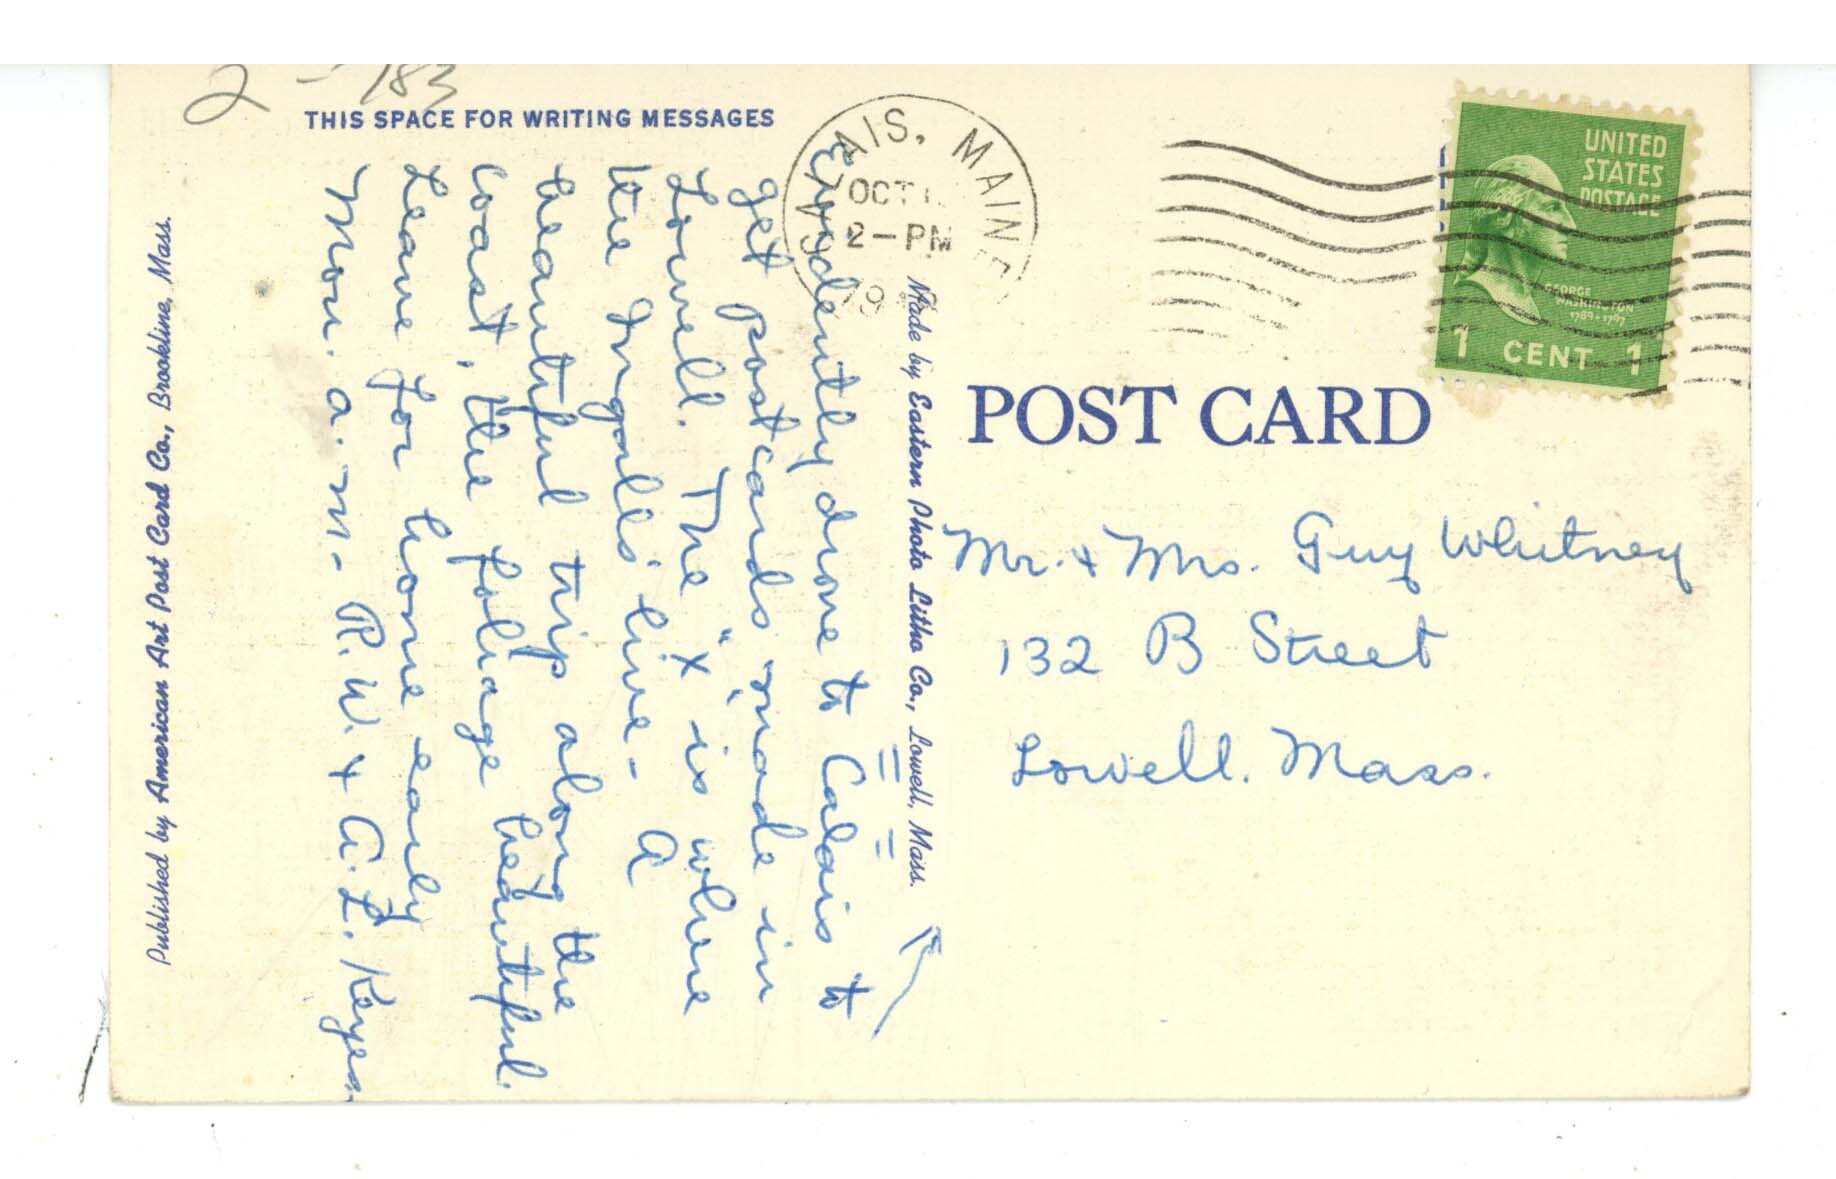 2 - 183
THIS SPACE FOR WRITING MESSAGES
Evidently drove to Calais to
get postcards made in
Lowell. The "x" is where
the Ingalls' live - A
beautiful trip along the
coast, the foliage beautiful.
Leave for home early
Mon. a.m. - R.W. + A.L. Keyes
Published by American Art Post Card Co., Brookline, Mass.
Made by Eastern Photo Litho Co., Lowell, Mass.
CALAIS, MAINE
OCT 1
2-PM
19
UNITED
STATES
POSTAGE
GEORGE
WASHINGTON
1789-1797
1 CENT 1
POST CARD
Mr. + Mrs. Guy Whitney
132 B Street
Lowell. Mass.